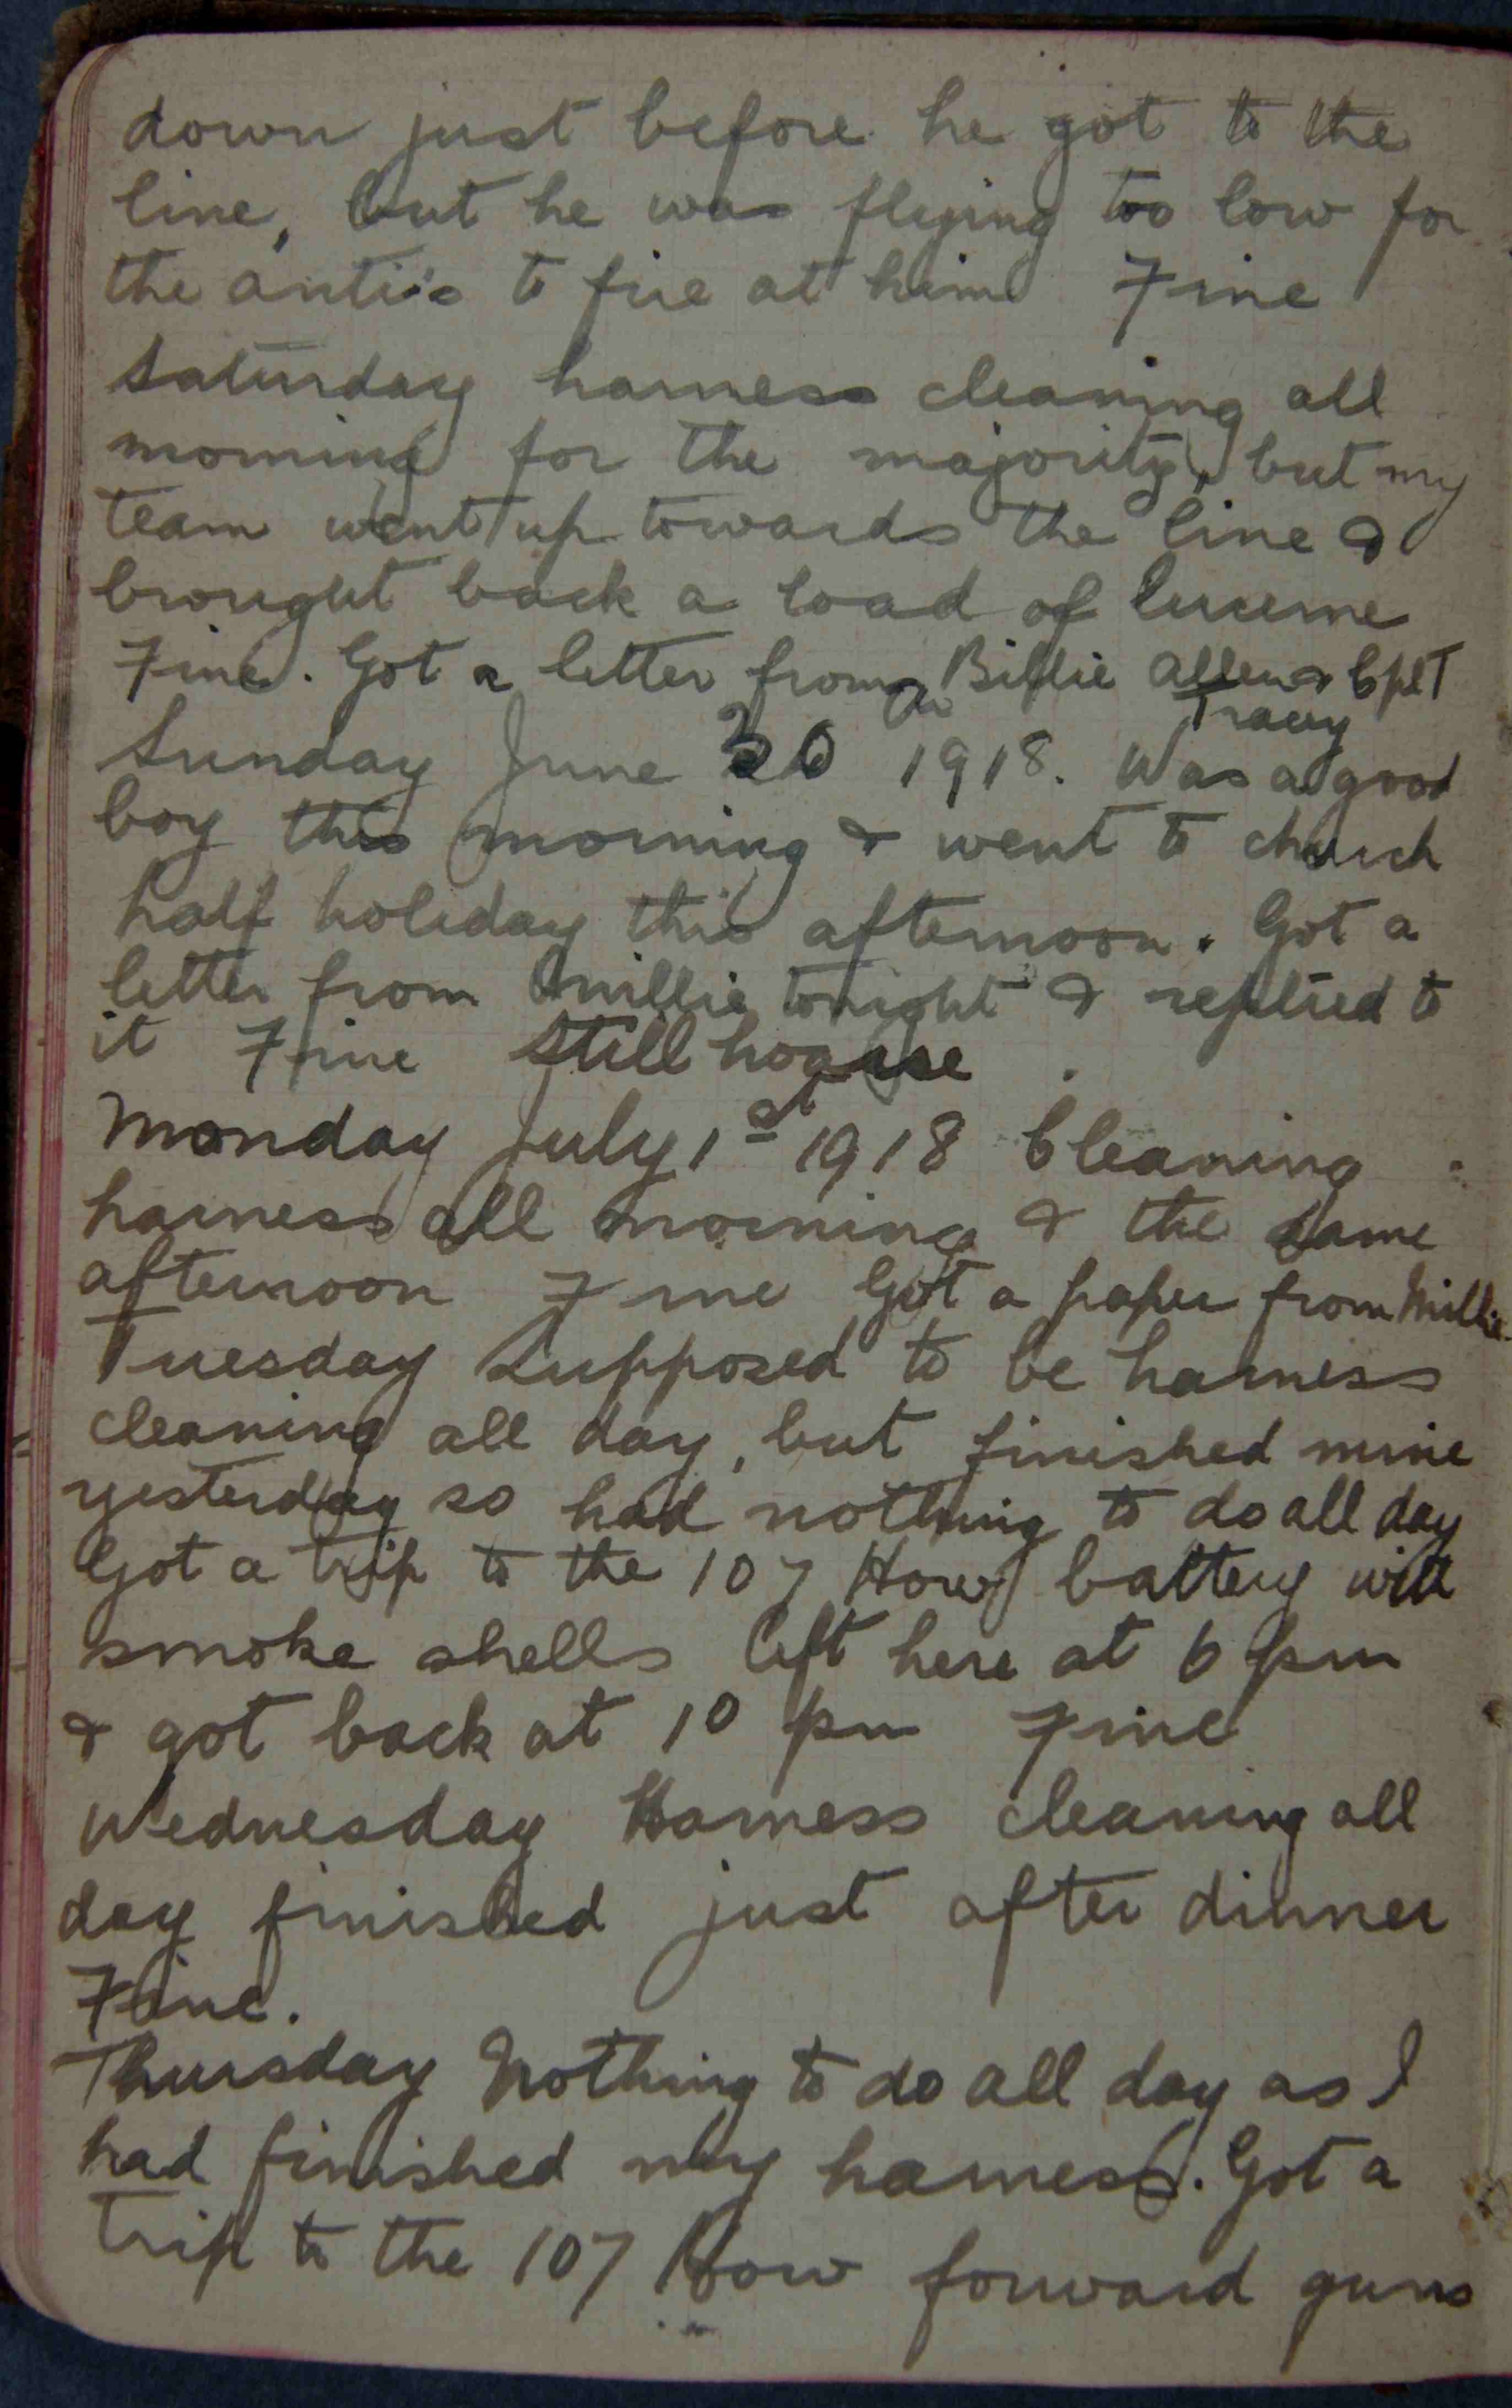 down just before he got to the
line, but he was flying too low for
the antis to fire at him Fine
Saturday harness cleaning all
morning for the majority, but my
team went up towards the line &
brought back a load of lucerne
Fine. Got a letter from Billie Allen & Cpl T
Tracey
Sunday June 30 1918. Was a good
boy this morning & went to church
half holiday this afternoon. Got a
letter from Millie tonight & replied to
it Fine Still hoarse
Monday July 1st 1918 Cleaning
harness all morning & the same
afternoon Fine Got a paper from Millie
Tuesday Supposed to be harness
cleaning all day, but finished mine
yesterday so had nothing to do all day
Got a trip to the 107 How battery with
smoke shells left here at 6 pm
& got back at 10 pm Fine
Wednesday Harness cleaning all
day finished just after dinner
Fine.
Thursday Nothing to do all day as I
had finished my harness. Got a
trip to the 107 How forward guns